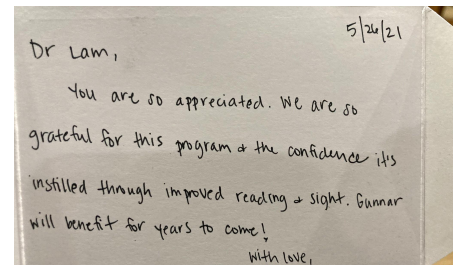 5/26/21
Dr Lam,
You are so appreciated. We are so
grateful for this program & the confidence it's
instilled through improved reading & sight. Gunnar
will benefit for years to come!
With love,